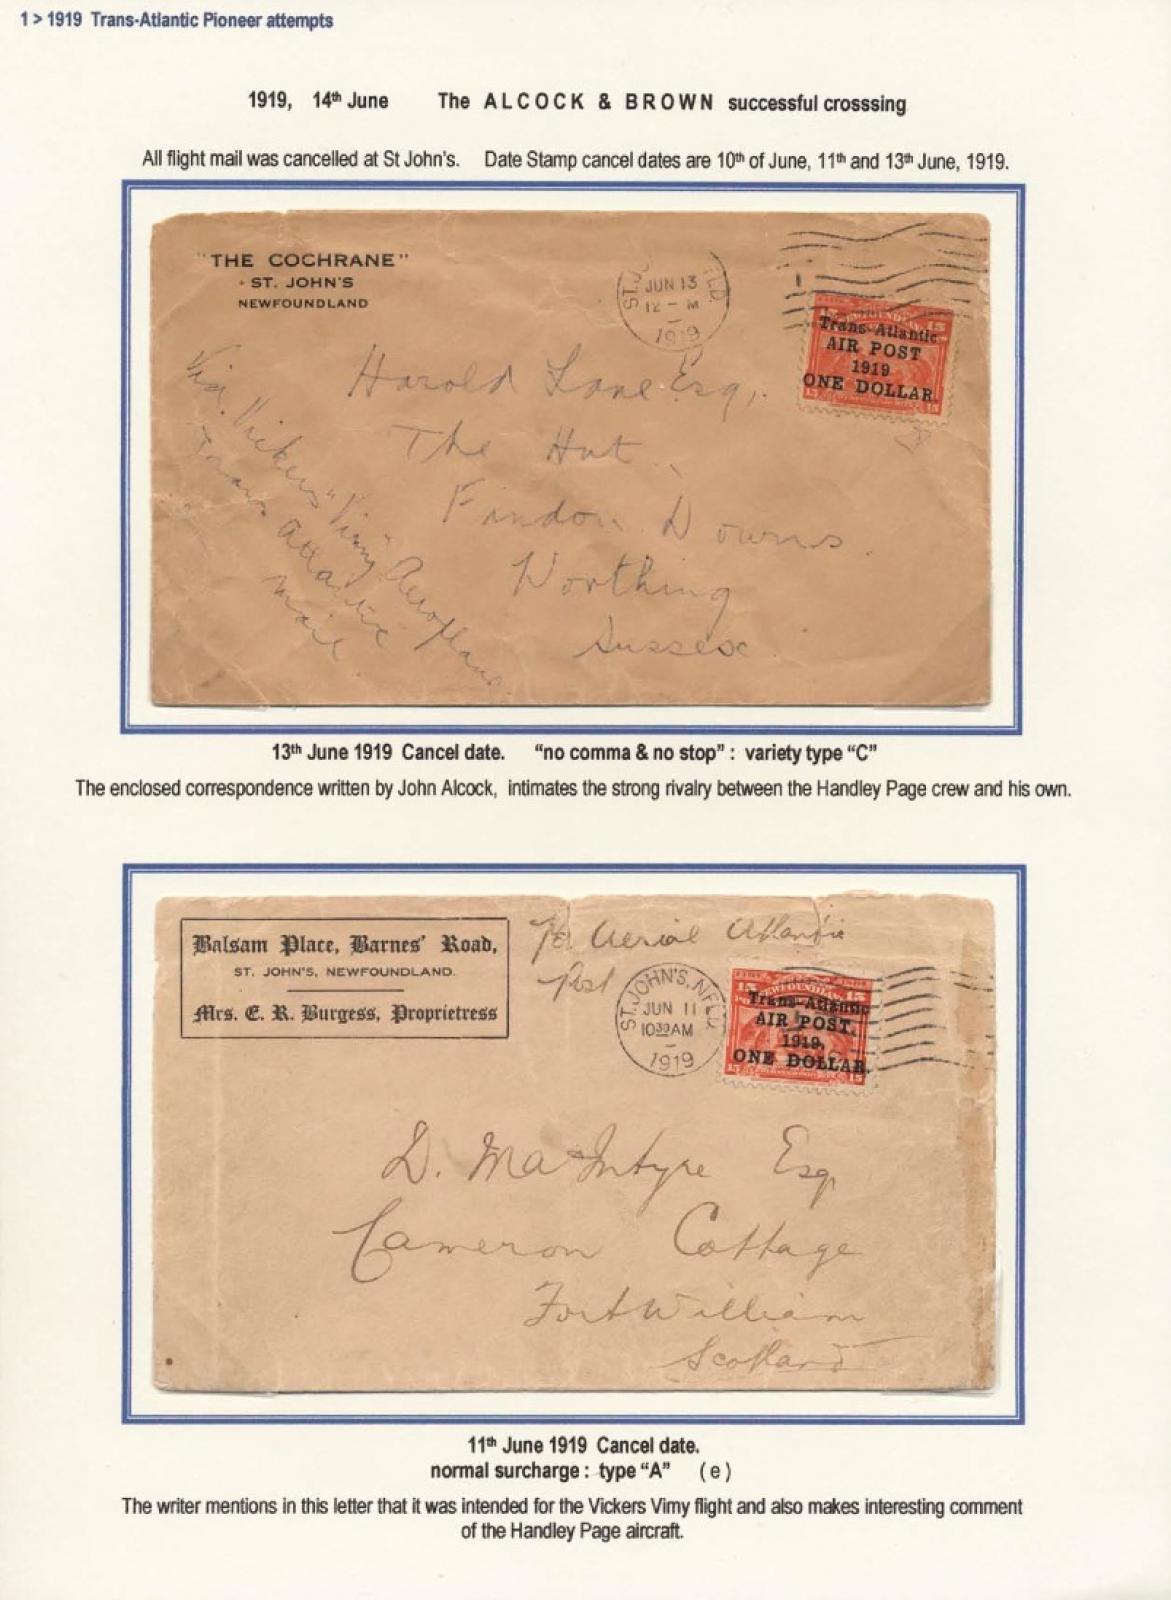 1 > 1919 Trans-Atlantic Pioneer attempts
1919, 14th June The ALCOCK & BROWN successful crosssing
All flight mail was cancelled at St John's. Date Stamp cancel dates are 10th of June, 11th and 13th June, 1919.
"THE COCHRANE"
ST. JOHN'S
NEWFOUNDLAND
ST. J FLD.
JUN 13
12 - M
1919
15 15
Trans-Atlantic
AIR POST
1919
ONE DOLLAR.
15 15
Harold Lane Esq,.
The Hut
Findon Downs.
Worthing
Sussex
Via Vickers "Vimy" Aeroplane
Trans Atlantic
Mail
13th June 1919 Cancel date. "no comma & no stop" : variety type "C"
The enclosed correspondence written by John Alcock, intimates the strong rivalry between the Handley Page crew and his own.
Balsam Place, Barnes' Road,
ST. JOHN'S, NEWFOUNDLAND.
Mrs. E. R. Burgess, Proprietress
Per Aerial Atlantic
Post
ST. JOHN'S, NFLD.
JUN 11
1030 AM
1919
15 15
NEWFOUNDLAND
Trans-Atlantic
AIR POST.
1919,
ONE DOLLAR.
15 15
D. MacIntyre Esq
Cameron Cottage
Fort William
Scotland
11th June 1919 Cancel date.
normal surcharge : type "A" (e)
The writer mentions in this letter that it was intended for the Vickers Vimy flight and also makes interesting comment
of the Handley Page aircraft.